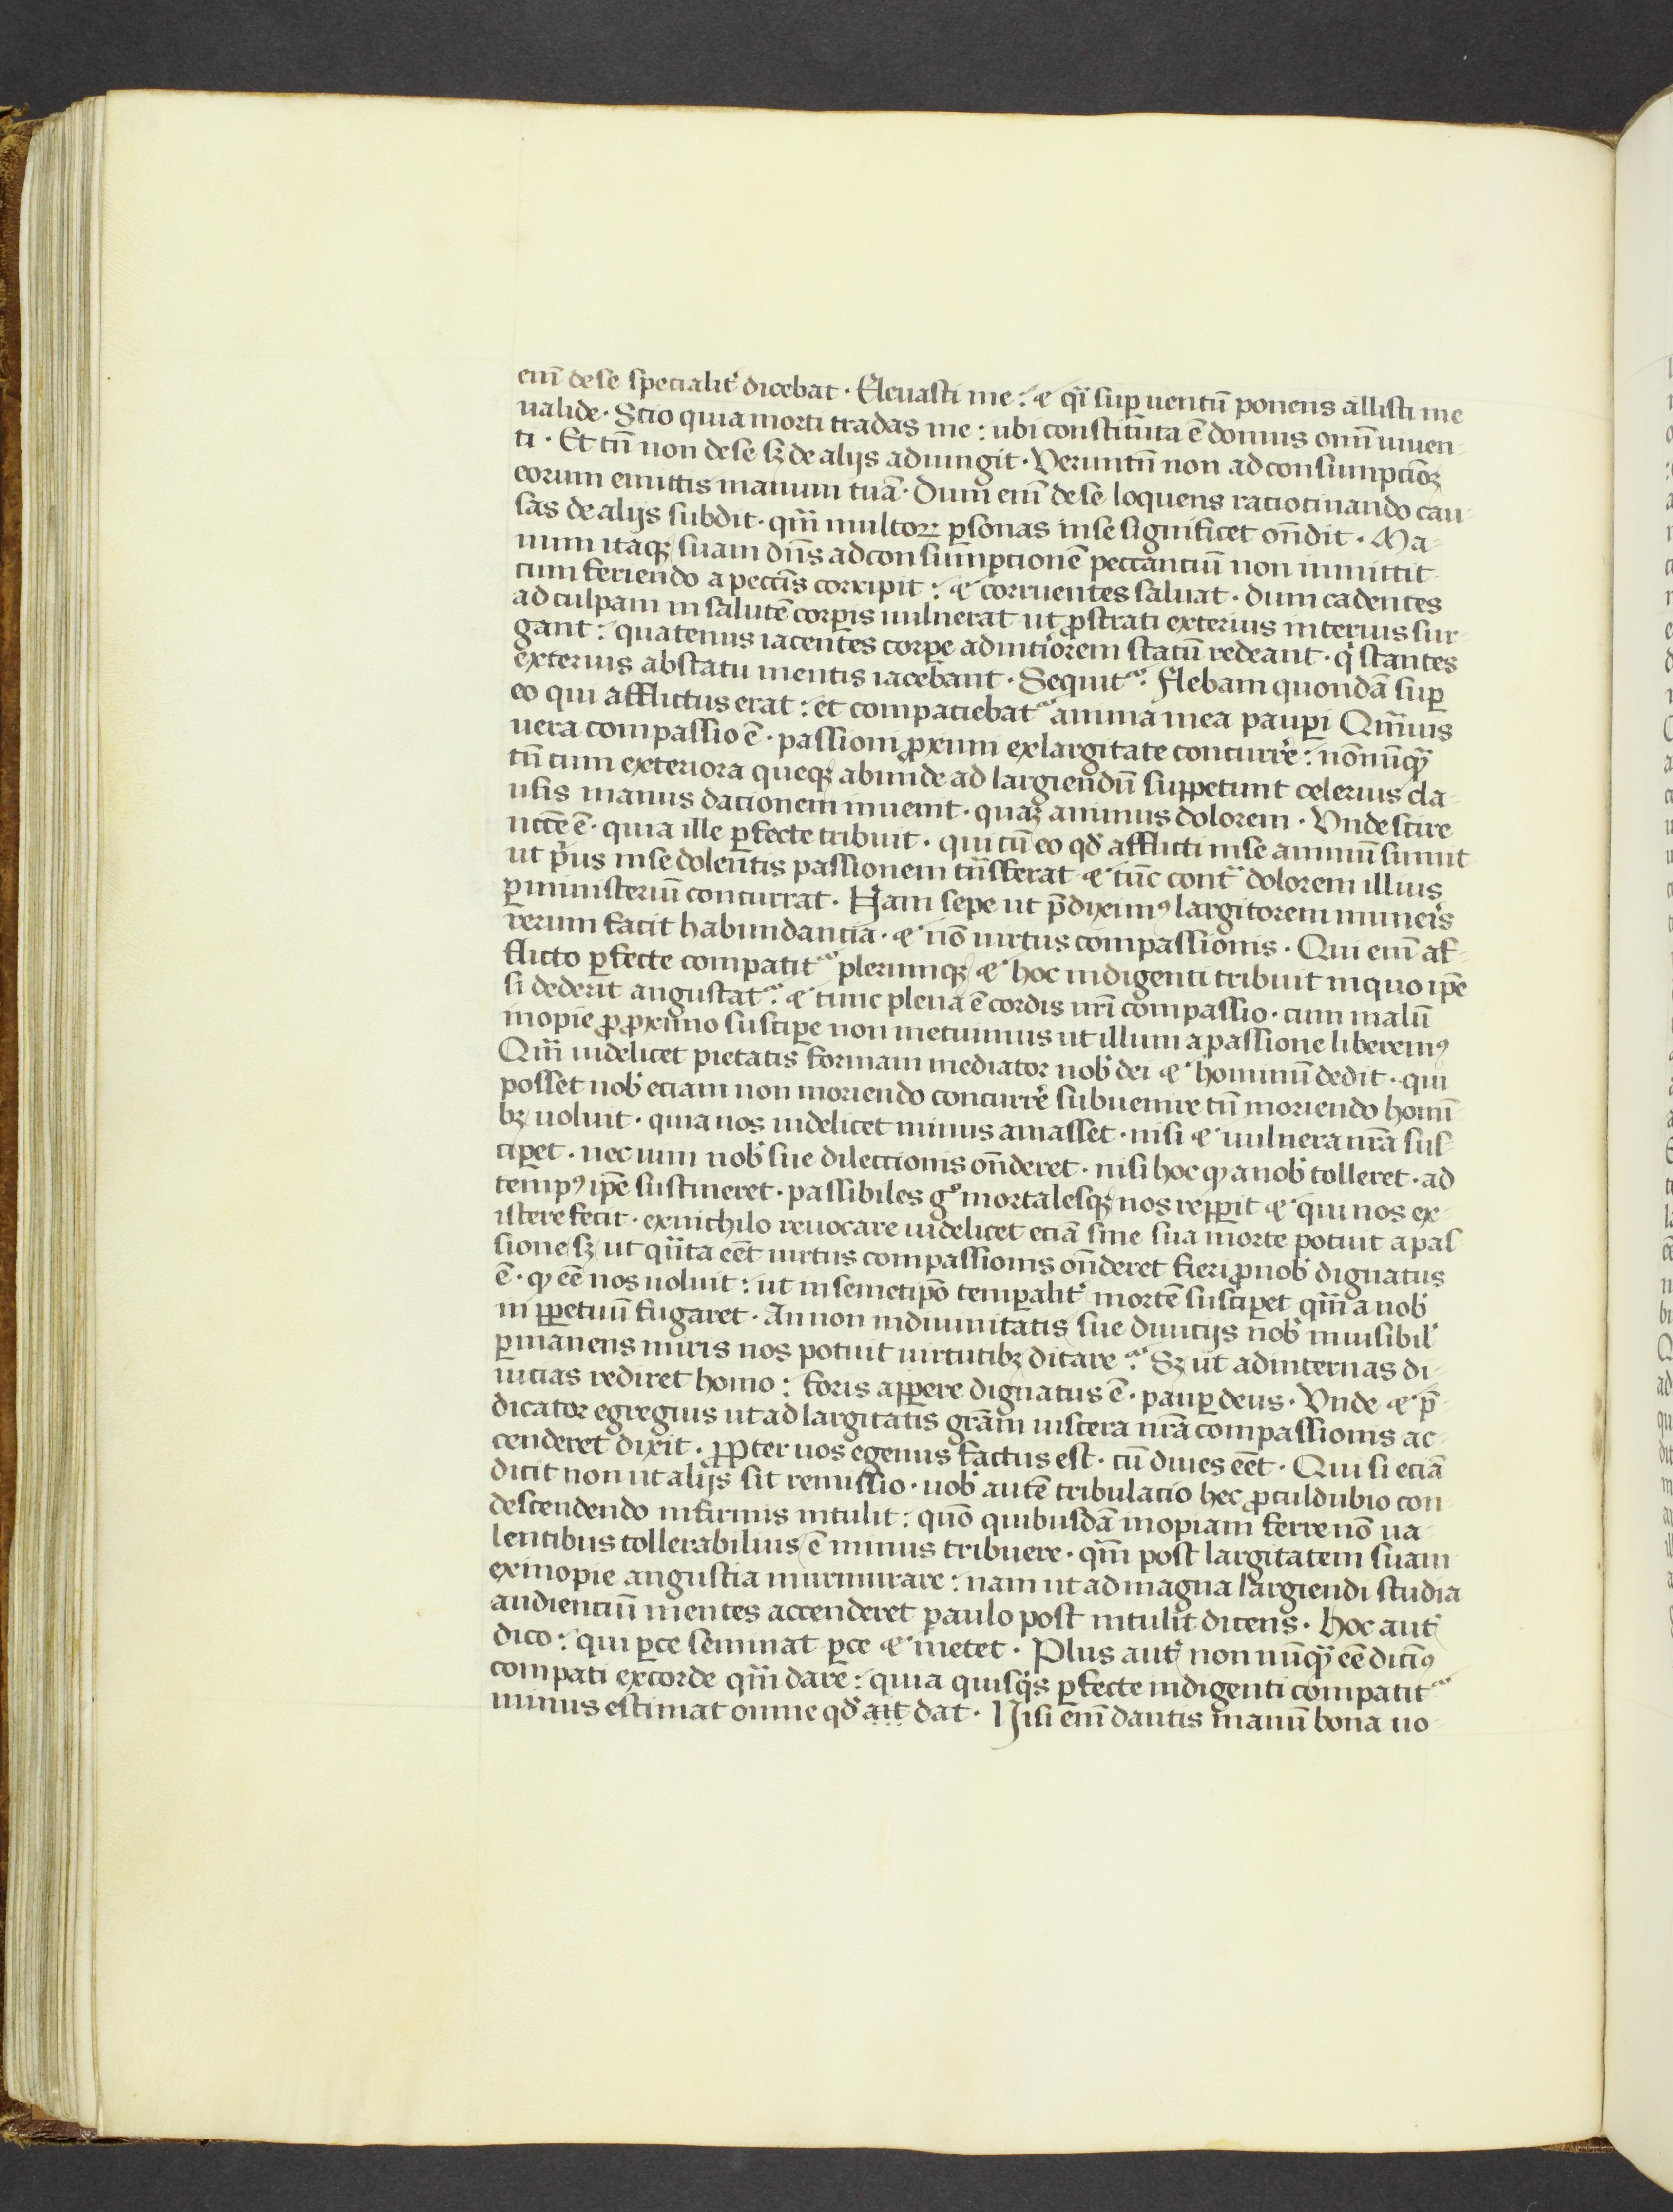 enī de se specialit̉ dicebat · Eleuasti me : ⁊ qͣi suꝑ uentū ponens allisti me
ualide · Scio quia morti tradas me : ubi constituta ē domus omī uiuen-
ti · Et tn̄ non de se sꝫ de alijs adiungit · Veruntn̄ non ad consumpcioꝫ
eorum emittis manum tuā · Dum enī de se loquens raciocinando cau-
sas de alijs subdit · qm̄ multoꝝ ꝑsonas in se significet on̄dit · Ma-
num itaqꝫ suam dn̄s ad consumpcionē peccanciū non inmittit
cum feriendo a pecc̄is corripit : ⁊ corruentes saluat · dum cadentes
ad culpam in salutē corꝑis uulnerat ut ꝓstrati exterius interius sur-
gant : quatenus iacentes corꝑe ad int̉iorem statū redeant · qͥ stantes
exterius ab statu mentis iacebant · Sequit᷑ · Flebam quondā suꝑ
eo qui afflictus erat : et compaciebat᷑ anima mea pauꝑi Qm̄uis
uera compassio ē · passioni ꝓximi ex largitate concurre᷑ : nōnūqꝫ
tn̄ cum exteriora queqꝫ abunde ad largiendū suppetunt celerius da-
ntis manus dacionem inuenit · quaꝫ animus dolorem · Vnde scire
necc̄e ē · quia ille ꝑfecte tribuit · qui cū eo qd̓ afflicti in se animū sumit
ut pͥus in se dolentis passionem trͣsferat ⁊ tūc cont̉ dolorem illius
ꝑ ministeriū concurrat · Nam sepe ut p̄diximꝰ largitorem munei̓s
rerum facit habundancia · ⁊ nō uirtus compassionis · Qui enī af-
flicto ꝑfecte compatit᷑ plerumqꝫ ⁊ hoc indigenti tribuit in quo ip̄e
si dederit angustat᷑ · ⁊ tunc plena ē cordis nr̄i compassio · cum malū
inopie ꝓ ꝓximo susciꝑe non metuimus ut illum a passione liberemꝰ
Qm̄ uidelicet pietatis formam mediator nob̓ dei ⁊ hominū dedit · qui
posset nob̓ eciam non moriendo concurre᷑ subuenire tn̄ moriendo homi-
bꝫ uoluit · quia nos uidelicet minus amasset · nisi ⁊ uulnera nr̄a sus-
ciꝑet · nec uim nob̓ sue dileccionis on̄deret · nisi hoc qꝫ a nob̓ tolleret · ad
tempꝰ ip̄e sustineret · passibiles gͦ mortalesqꝫ nos reꝑꝑit ⁊ qui nos ex-
istere fecit · ex nichilo reuocare uidelicet eciā sine sua morte potuit a pas-
sione sꝫ ut qͣnta eēt uirtus compassionis on̄deret fieri ꝓ nob̓ dignatus
ē · qꝫ eē nos noluit : ut in semetip̄o temꝑalit̉ mortē susciꝑet qm̄ a nob̓
in ꝑꝑetuū fugaret · An non in diuinitatis sue diuicijs nob̓ inuisibil̓
ꝑmanens miris nos potuit uirtutibꝫ ditare · Sꝫ ut ad internas di-
uicias rediret homo : foris apꝑere dignatus ē · pauꝑ deus · Vnde ⁊ p̄-
dicator egregius ut ad largitatis grām uiscera nr̄a compassionis ac-
cenderet dixit · ꝓpter uos egenus factus est · cū diues eēt · Qui si eciā
dicit non ut alijs sit remissio · uob̓ autē tribulacio hec ꝓculdubio con-
descendendo infirmis intulit : quō quibusdā inopiam ferre nō ua-
lentibus tollerabilius ē minus tribuere · qm̄ post largitatem suam
ex inopie angustia murmurare : nam ut ad magna largiendi studia
audienciū mentes accenderet paulo post intulit dicens · Hoc aut̉
dico : qui ꝑce seminat ꝑce ⁊ metet · Plus aut̉ non nūqꝫ eē dicimꝰ
compati ex corde qm̄ dare : quia quisqͥs ꝑfecte indigenti compatit᷑
minus estimat omne qd̓ ait dat · Nisi enī dantis manū bona uo-